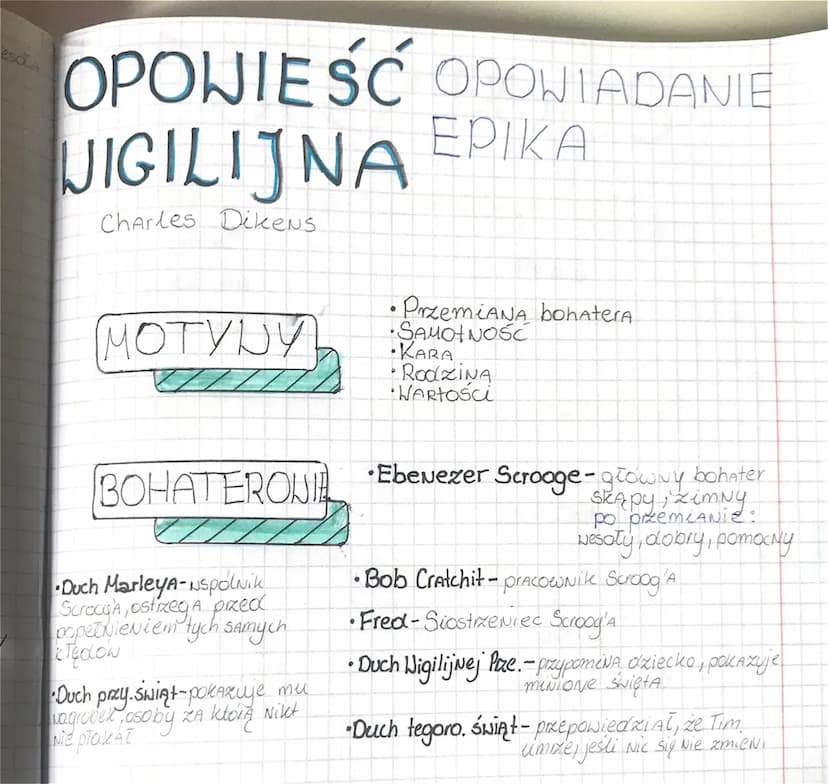 OPOWIEŚĆ
WIGILIJNA
OPOWIADANIE
EPIKA
Charles Dikens
MOTYWY
• Przemiana bohatera
• Samotność
• Kara
• Rodzina
• Wartości
BOHATEROWIE
• Ebenezer Scrooge - główny bohater
skąpy, zimny
po przemianie:
wesoły, dobry, pomocny
• Duch Marleya - wspólnik
ostrzega przed
popełnieniem tych samych
błędów
• Duch przy. świąt - pokazuje mu
nagrobek, osoby za którą nikt
nie płakał
• Bob Cratchit - pracownik Scroog'a
• Fred - Siostrzeniec Scroog'a
• Duch Wigilijnej Prze. - przypomina dziecko, pokazuje
minione święta
• Duch tegoro. świąt - przepowiedział, że Tim
umrze, jeśli nic się nie zmieni